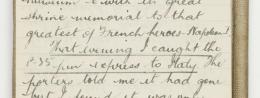 with its great
shrine memorial to that
greatest of French heroes Napoleon I
That evening I caught the
8-35 pm express to Italy. The
porters told me it had gone
but I found it was only